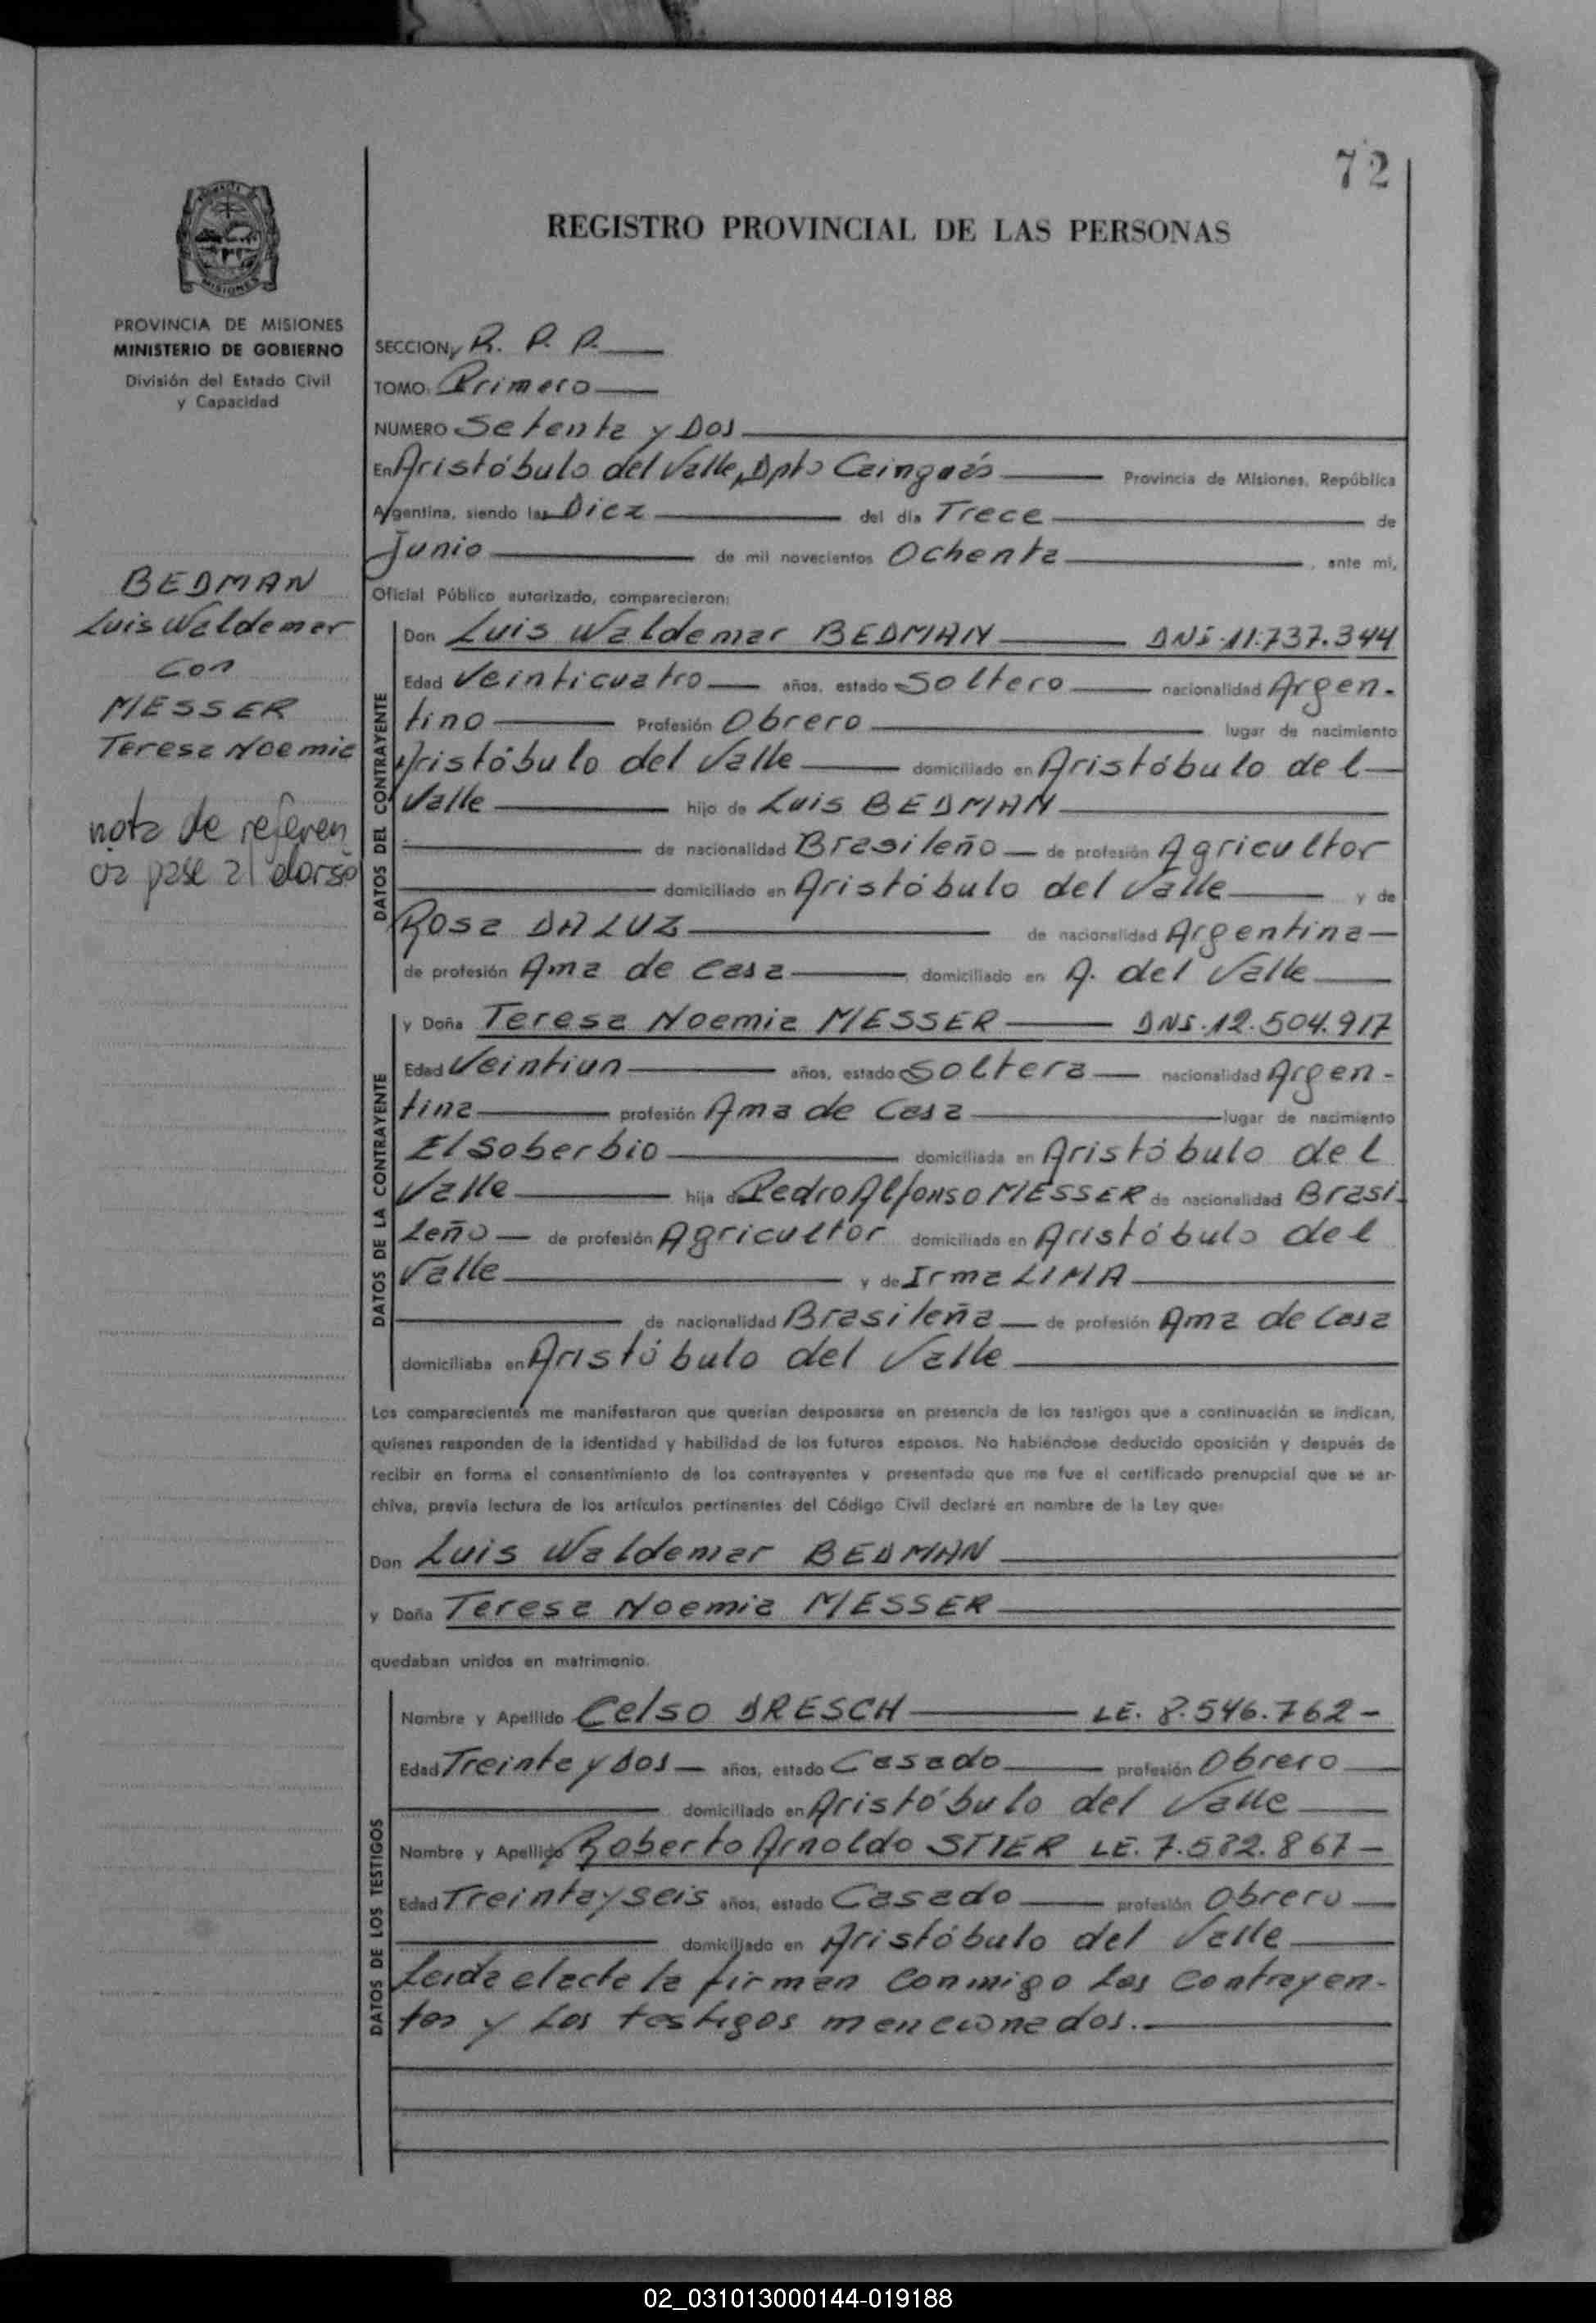 72
REGISTRO PROVINCIAL DE LAS PERSONAS
MISIONES
PROVINCIA DE MISIONES
MINISTERIO DE GOBIERNO
División del Estado Civil
y Capacidad
BEDMAN
Luis Waldemar
con
MESSER
Teresa Noemia
nota de referen
cia pase al dorso
SECCION, R. P. P.
TOMO: Primero
NUMERO Setenta y Dos
En Aristóbulo del Valle, Dpto Cainguás Provincia de Misiones, República
Argentina, siendo las Diez del día Trece de
Junio de mil novecientos Ochenta, ante mi,
Oficial Público autorizado, comparecieron:
DATOS DEL CONTRAYENTE
Don Luis Waldemar BEDMAN DNI. 11.737.344
Edad Veinticuatro años, estado Soltero nacionalidad Argen-
tino Profesión Obrero lugar de nacimiento
Aristóbulo del Valle domiciliado en Aristóbulo del
Valle hijo de Luis BEDMAN
de nacionalidad Brasileño de profesión Agricultor
domiciliado en Aristóbulo del Valle y de
Rosa DA LUZ de nacionalidad Argentina
de profesión Ama de Casa domiciliado en A. del Valle
DATOS DE LA CONTRAYENTE
y Doña Teresa Noemia MESSER DNI. 12.504.917
Edad Veintiun años, estado Soltera nacionalidad Argen-
tina profesión Ama de Casa lugar de nacimiento
El Soberbio domiciliada en Aristóbulo del
Valle hija de Pedro Alfonso MESSER de nacionalidad Brasi-
leño de profesión Agricultor domiciliado en Aristóbulo del
Valle y de Irma LIMA
de nacionalidad Brasileña de profesión Ama de Casa
domiciliaba en Aristóbulo del Valle
Los comparecientes me manifestaron que querían desposarse en presencia de los testigos que a continuación se indican,
quienes responden de la identidad y habilidad de los futuros esposos. No habiéndose deducido oposición y después de
recibir en forma el consentimiento de los contrayentes y presentado que me fue el certificado prenupcial que se ar-
chiva, previa lectura de los artículos pertinentes del Código Civil declaré en nombre de la Ley que:
Don Luis Waldemar BEDMAN
y Doña Teresa Noemia MESSER
quedaban unidos en matrimonio.
DATOS DE LOS TESTIGOS
Nombre y Apellido Celso DRESCH LE. 8.546.762-
Edad Treinta y Dos años, estado Casado profesión Obrero
domiciliado en Aristóbulo del Valle
Nombre y Apellido Roberto Arnoldo STIER LE. 7.582.867-
Edad Treinta y seis años, estado Casado profesión Obrero
domiciliado en Aristóbulo del Valle
Leida el acta la firman conmigo los contrayen-
tes y los testigos mencionados.-
02_031013000144-019188